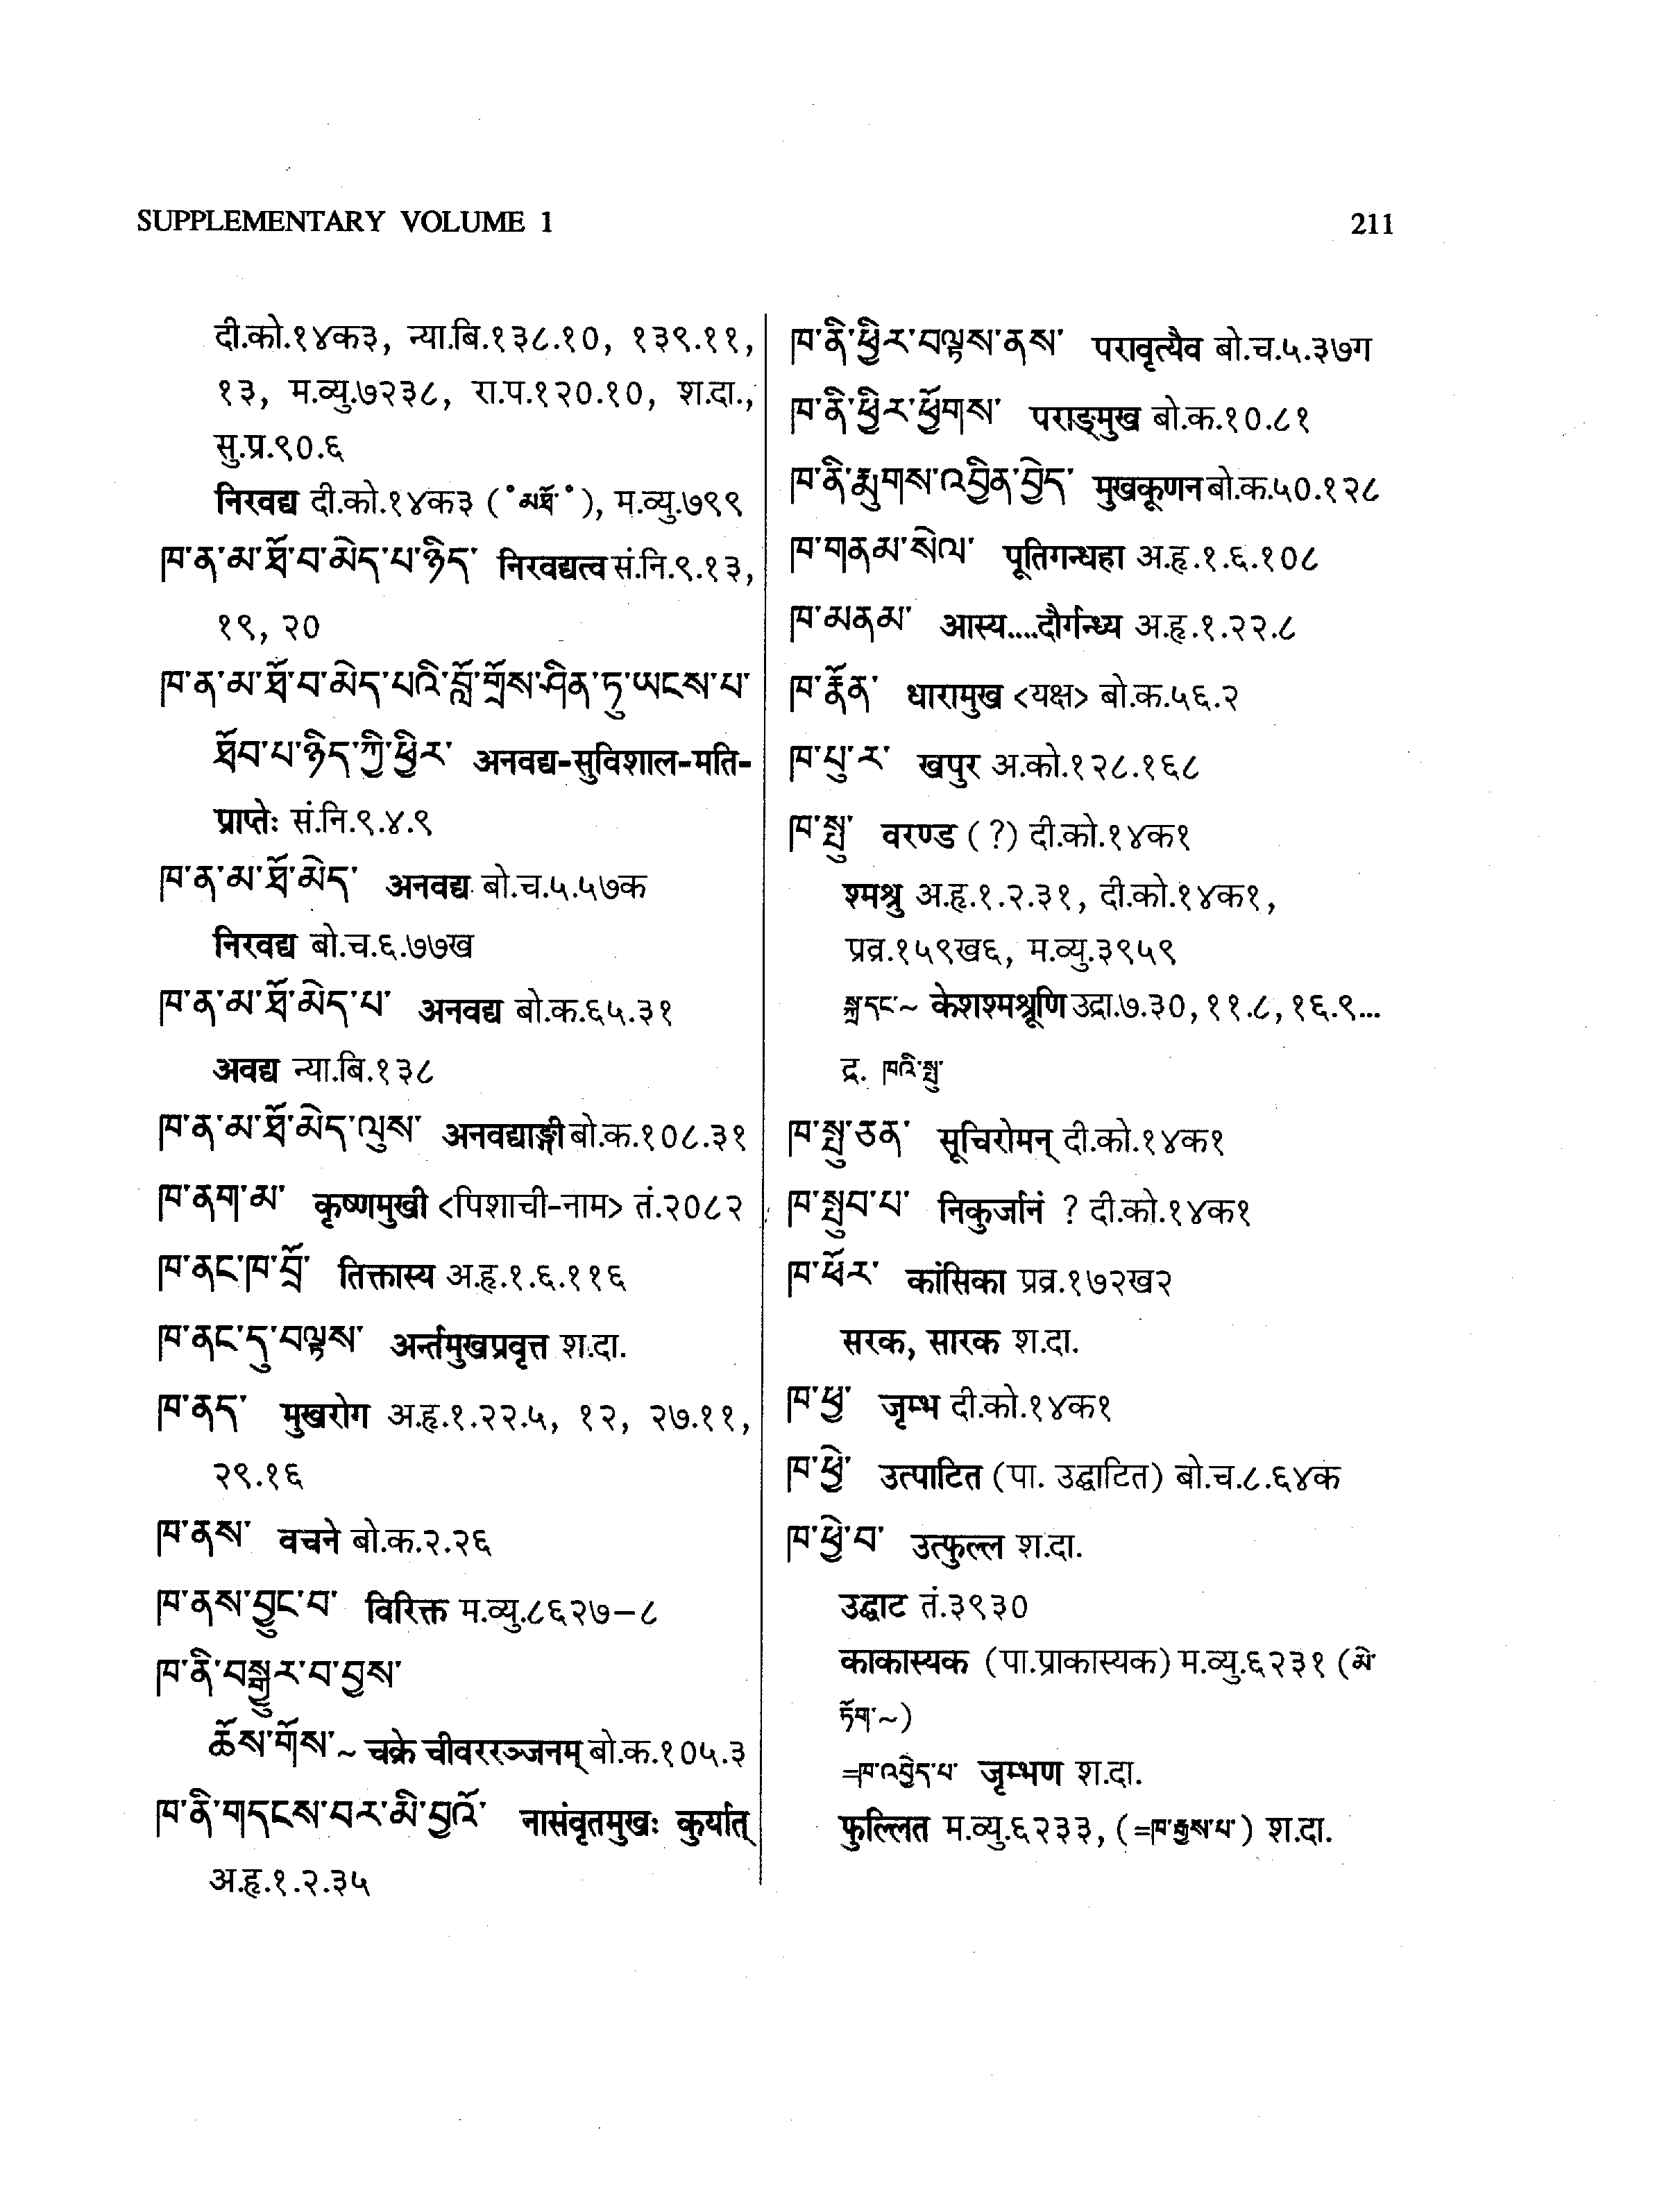 SUPPLEMENTARY VOLUME 1
211
दी.को.१४क३, न्या.बि.१३८.१०, १३९.११,
१३, म.व्यु.७२३८, रा.प.१२०.१०, श.दा.,
सु.प्र.९०.६
निरवद्य दी.को.१४क३ (˚མཐོ་˚), म.व्यु.७९९
ཁ་ན་མ་ཐོ་བ་མེད་པ་ཉིད་ निरवद्यत्व सं.नि.९.१३,
१९, २०
ཁ་ན་མ་ཐོ་བ་མེད་པའི་བློ་གྲོས་ཤིན་ཏུ་ཡངས་པ་
ཐོབ་པ་ཉིད་ཀྱི་ཕྱིར་ अनवद्य-सुविशाल-मति-
प्राप्तेः सं.नि.९.४.९
ཁ་ན་མ་ཐོ་མེད་ अनवद्य बो.च.५.५७क
निरवद्य बो.च.६.७७ख
ཁ་ན་མ་ཐོ་མེད་པ་ अनवद्य बो.क.६५.३१
अवद्य न्या.बि.१३८
ཁ་ན་མ་ཐོ་མེད་ལུས་ अनवद्याङ्गी बो.क.१०८.३१
ཁ་ནག་མ་ कृष्णमुखी <पिशाची-नाम> तं.२०८२
ཁ་ནང་ཁ་བྲོ་ तिक्तास्य अ.हृ.१.६.११६
ཁ་ནང་དུ་བལྟས་ अर्न्तमुखप्रवृत्त श.दा.
ཁ་ནད་ मुखरोग अ.हृ.१.२२.५, १२, २७.११,
२९.१६
ཁ་ནས་ वचने बो.क.२.२६
ཁ་ནས་བྱུང་བ་ विरिक्त म.व्यु.८६२७-८
ཁ་ནི་བསྒྱུར་བ་བྱས་
ཆོས་གོས་~ चक्रे चीवररञ्जनम् बो.क.१०५.३
ཁ་ནི་གདངས་བར་མི་བྱའོ་ नासंवृतमुखः कुर्यात्
अ.हृ.१.२.३५
ཁ་ནི་ཕྱིར་བལྟས་ནས་ परावृत्यैव बो.च.५.३७ग
ཁ་ནི་ཕྱིར་ཕྱོགས་ पराङ्मुख बो.क.१०.८१
ཁ་ནི་རྨུགས་འབྱིན་བྱེད་ मुखकूणन बो.क.५०.१२८
ཁ་གནམ་སེལ་ पूतिगन्धहा अ.हृ.१.६.१०८
ཁ་མནམ་ आस्य....दौर्गन्ध्य अ.हृ.१.२२.८
ཁ་རྣོན་ धारामुख <यक्ष> बो.क.५६.२
ཁ་པུ་ར་ खपुर अ.को.१२८.१६८
ཁ་སྤུ་ वरण्ड (?) दी.को.१४क१
श्मश्रु अ.हृ.१.२.३१, दी.को.१४क१,
प्रव्र.१५९ख६, म.व्यु.३९५९
སྐྲ་དང་~ केशश्मश्रूणि उद्रा.७.३०, ११.८, १६.९...
द्र. ཁའི་སྤུ་
ཁ་སྤུ་ཅན་ सूचिरोमन् दी.को.१४क१
ཁ་སྤུབ་པ་ निकुर्जानं ? दी.को.१४क१
ཁ་ཕོར་ कांसिका प्रव्र.१७२ख२
सरक, सारक श.दा.
ཁ་ཕྱུ་ जृम्भ दी.को.१४क१
ཁ་ཕྱེ་ उत्पाटित (पा. उद्घाटित) बो.च.८.६४क
ཁ་ཕྱེ་བ་ उत्फुल्ल श.दा.
उद्घाट तं.३९३०
काकास्यक (पा.प्राकास्यक) म.व्यु.६२३१ (མེ་
ཏོག་~)
=ཁ་འབྱེད་པ་ जृम्भण श.दा.
फुल्लित म.व्यु.६२३३, (=ཁ་རྒྱས་པ་) श.दा.